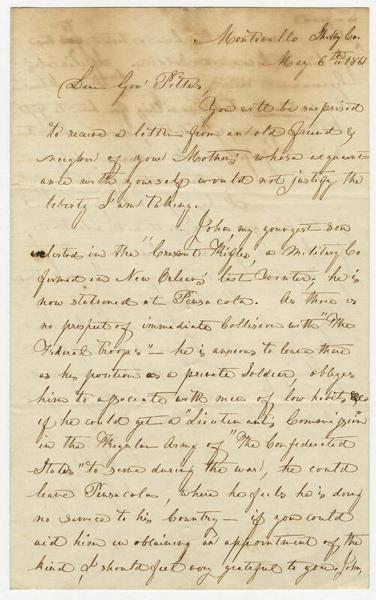 Montevallo Shelby Co.
May 6th 1861
Dear Gov' Pettus
You will be surprised
to receive a letter from an old friend &
neigbor of your Mother, whose acquaint
ance with yourself would not justify the
liberty I am talking.
John, my youngest son
enlisted in the "Cresent Rifles, a Military Co
formed in New Orleans last Winter, he is
now stationed at Pensacola. As there is
no prospect of immediate Collision with "The
Federal Troops" — he is anxious to leave there
as his position as a private Soldier, obliges
him to associate with men of low habits &c
if he could get a "Lieutenants Commission
in the Regular Army of "The Confederated
States" to serve during the war, he could
leave Pensacola, where he feels he is doing
no service to his Country — if you could
aid him in obtaining an appointment of the
kind, I should feel very grateful to you. John,